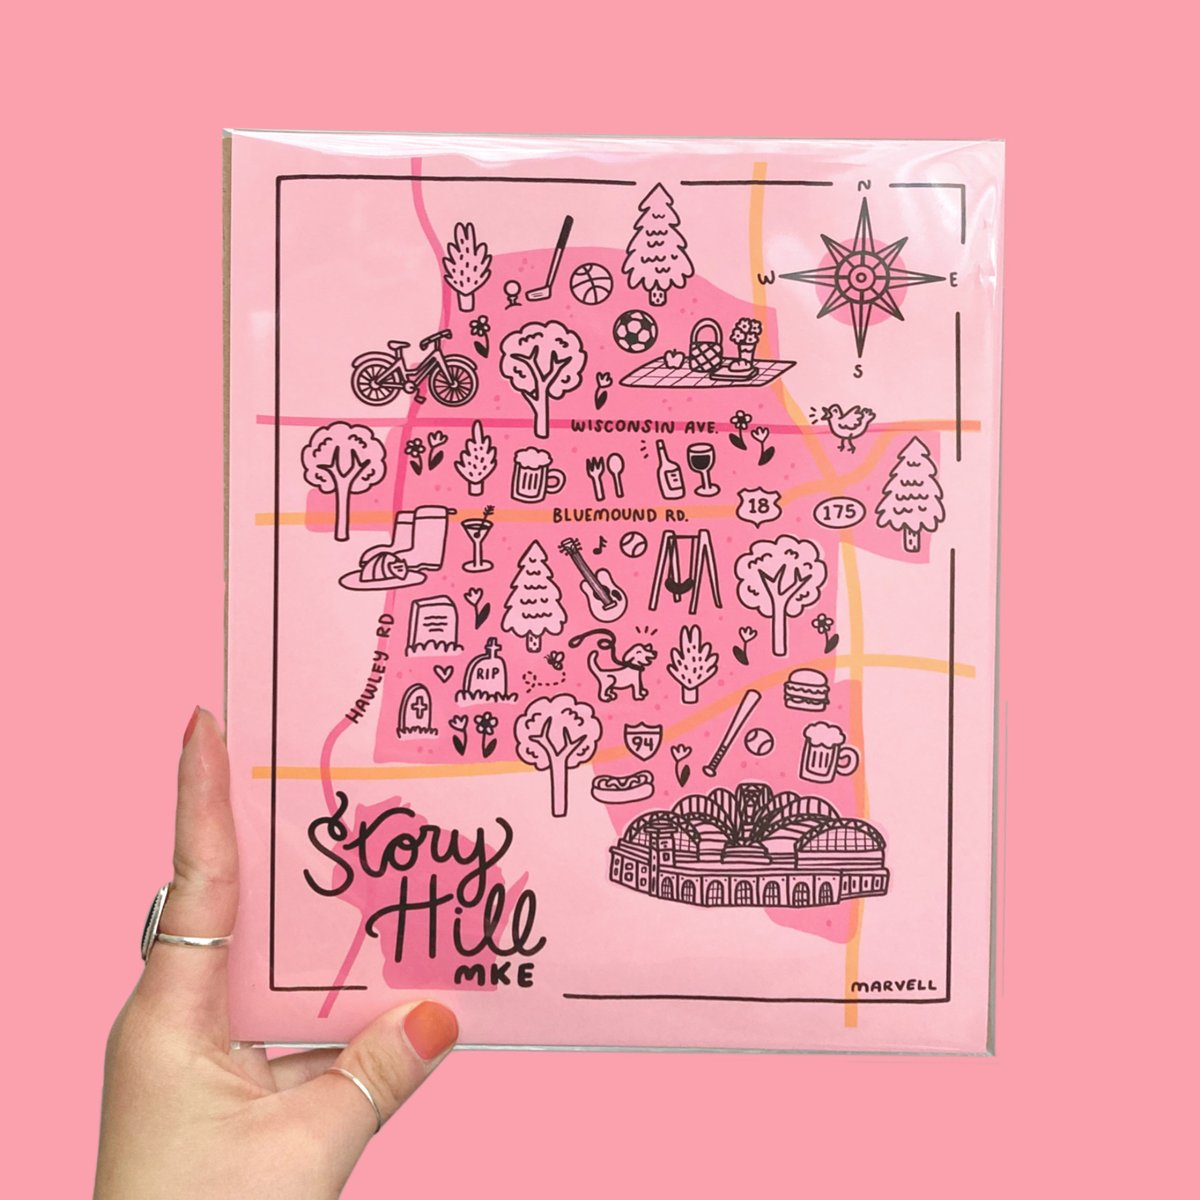 N
W E
S
WISCONSIN AVE.
18
175
BLUEMOUND RD.
HAWLEY RD
RIP
94
Story
Hill
MKE
MARVELL